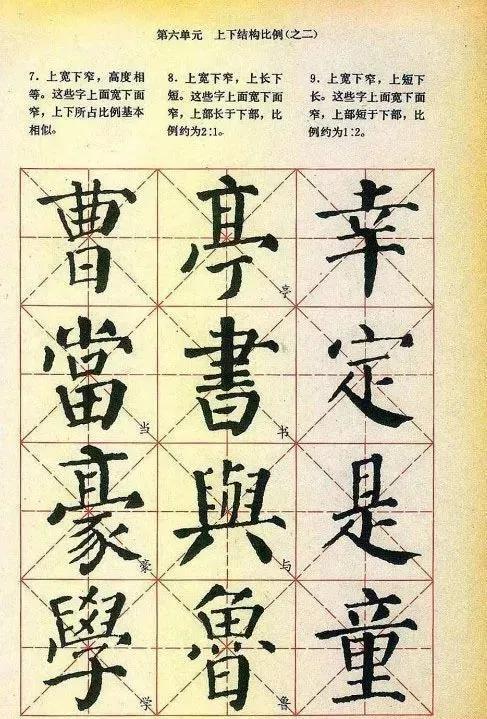 第六单元　上下结构比例(之二)
7．上宽下窄，高度相
等。这些字上面宽下面
窄，上下所占比例基本
相似。
8．上宽下窄，上长下
短。这些字上面宽下面
窄，上部长于下部，比
例约为2∶1。
9．上宽下窄，上短下
长。这些字上面宽下面
窄，上部短于下部，比
例约为1∶2。
曹 亭 亭 幸
當 当 書 书 定
豪 豪 與 与 是
學 学 魯 鲁 童